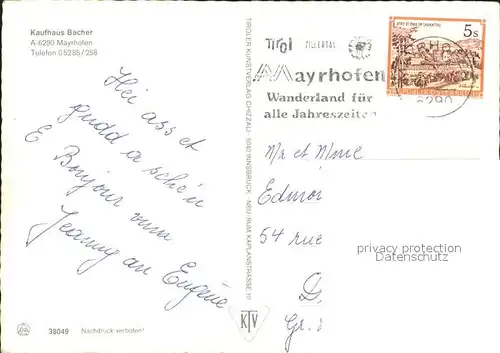 Kaufhaus Bacher
A-6290 Mayrhofen
Telefon 05285/258
Hei ass et
gudd a schéin
E Bonjour vum
Jeanny an Eugène
38049 Nachdruck verboten!
TIROLER KUNSTVERLAG CHIZZALI · 6040 INNSBRUCK - NEU-RUM, KAPLANSTRASSE 10
KTV
Tirol ZILLERTAL
Mayrhofen
Wanderland für
alle Jahreszeiten
6290
5s
STIFT ST. PAUL IM LAVANTTAL
REPUBLIK ÖSTERREICH
Mr et Mme
Edmon
54 rue
D
Gr.
privacy protection
Datenschutz